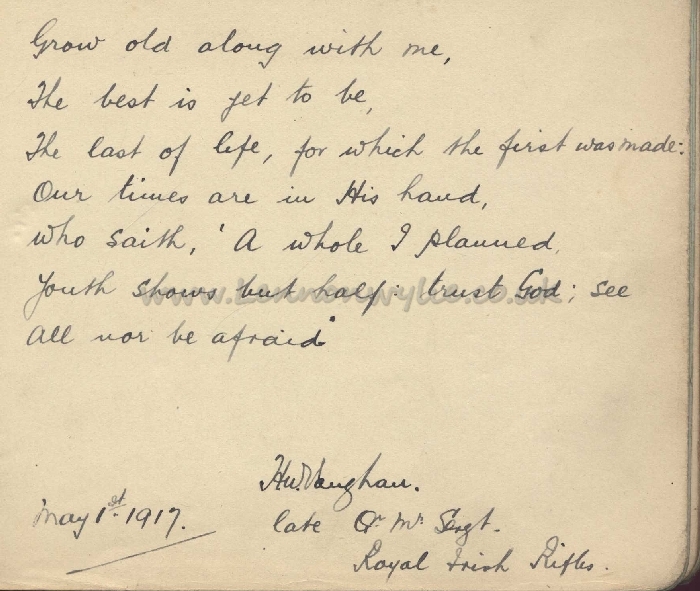 Grow old along with me,
The best is yet to be,
The last of life, for which the first was made:
Our times are in His hand,
Who saith, 'A whole I planned,
Youth shows but half: trust God; see
All nor be afraid'
H.W. Vaughan.
May 1st. 1917.
late Qr Mr Sergt.
Royal Irish Rifles.